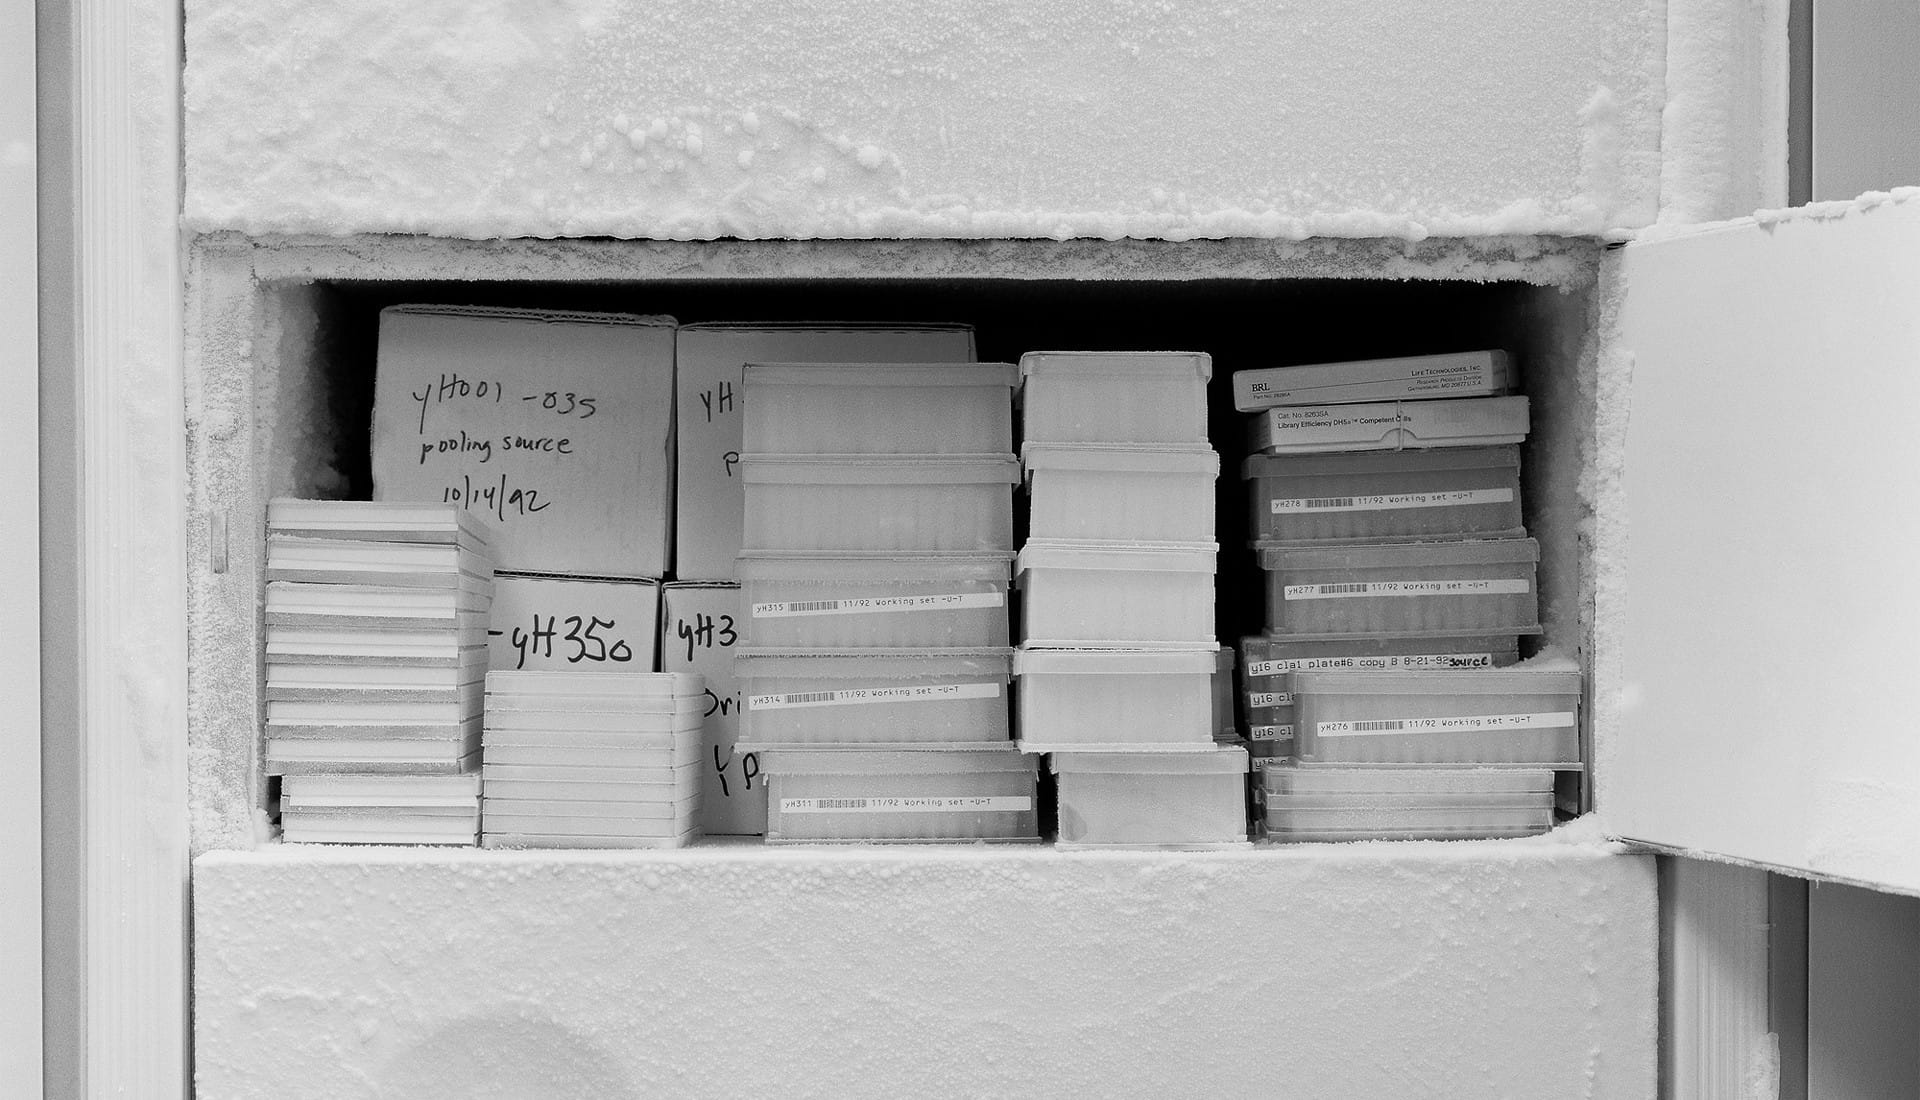 yH001 -035
pooling source
10/14/92
yH
-yH350
yH3
BRL
LIFE TECHNOLOGIES, INC.
RESEARCH PRODUCTS DIVISION
GAITHERSBURG, MD 20877 U.S.A.
Cat. No. 8263SA
Library Efficiency DH5α™ Competent Cells
yH278 11/92 Working set -U-T
yH277 11/92 Working set -U-T
y16 cla1 plate#6 copy B 8-21-92 source
y16 cl
y16 cl
yH276 11/92 Working set -U-T
yH315 11/92 Working set -U-T
yH314 11/92 Working set -U-T
yH311 11/92 Working set -U-T